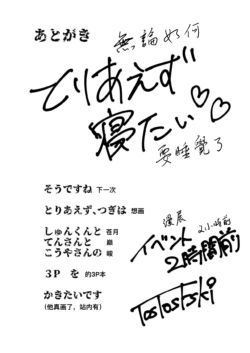 あとがき
無論如何
とりあえず
寝たい♡♡
要睡覺了
そうですね 下一次
とりあえず、つぎは 想画
しゅんくんと 苍月
てんさんと 巅
こうやさんの 峻
3P を 的3P本
かきたいです
(他真画了，站内有)
漫展
2小時前
イベント
2時間前
TostosTski